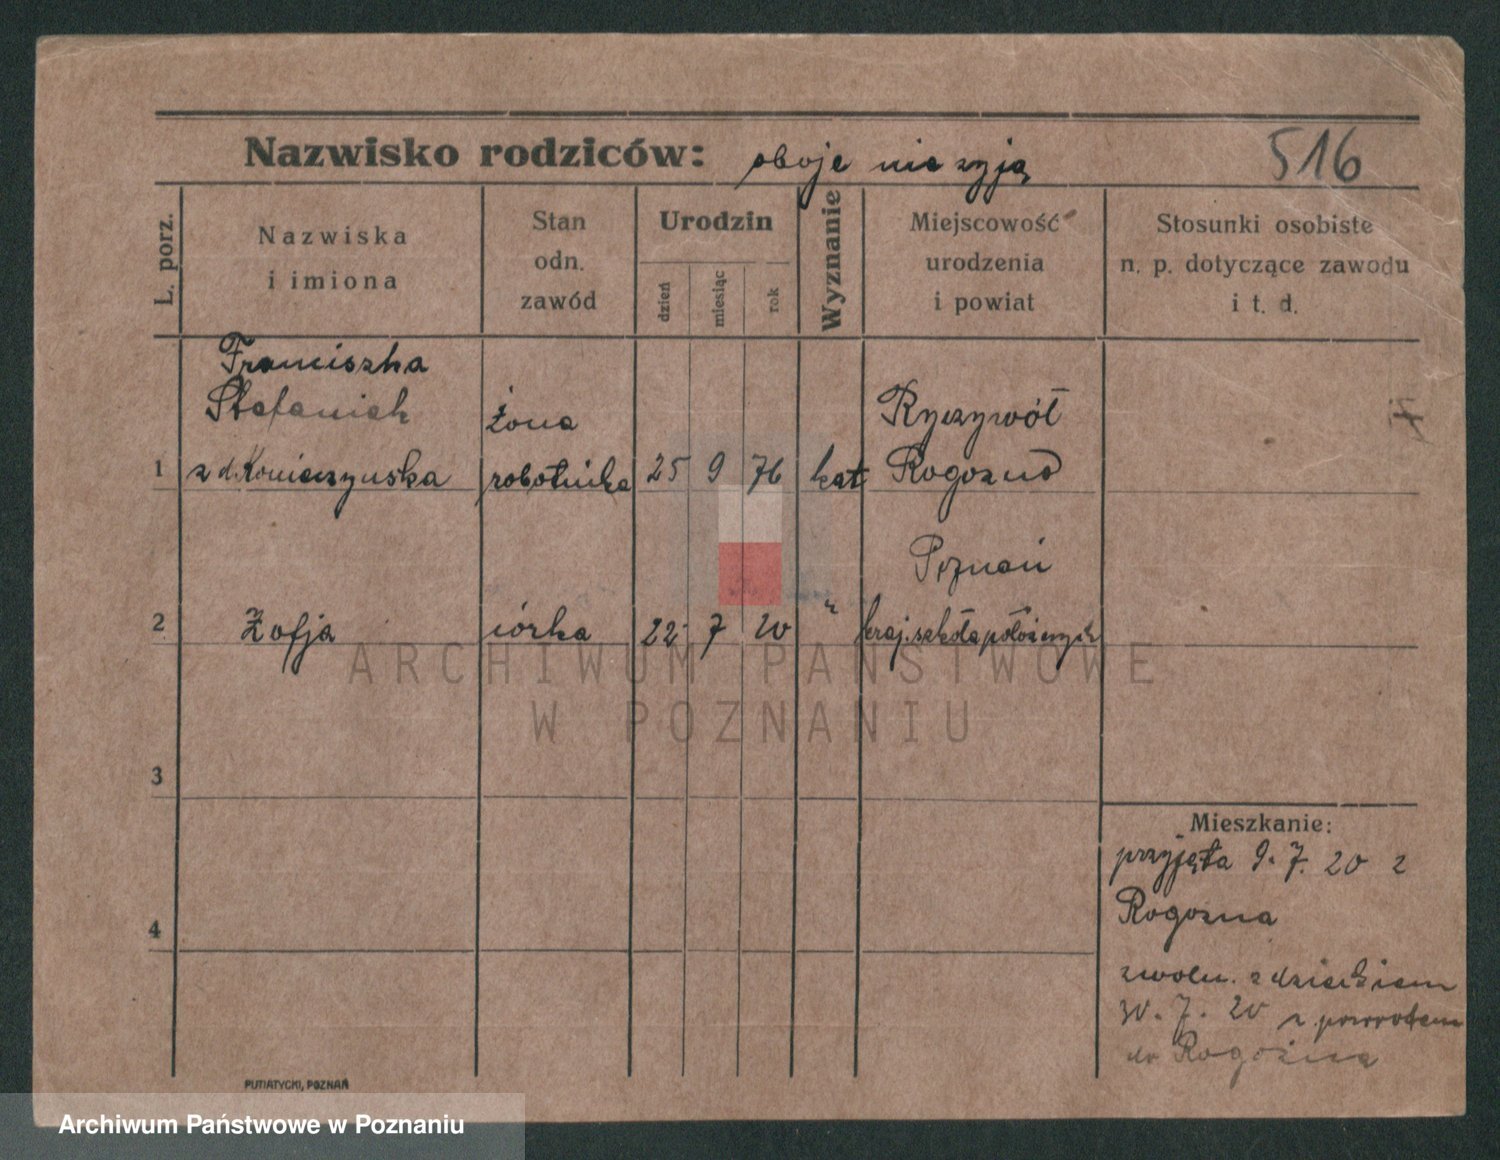 Nazwisko rodziców: oboje nie żyją 516
L. porz.
Nazwiska
i imiona
Stan
odn.
zawód
Urodzin
dzień
miesiąc
rok
Wyznanie
Miejscowość
urodzenia
i powiat
Stosunki osobiste
n. p. dotyczące zawodu
i t. d.
Franciszka
Stefaniak żona Ryczywół
1 z d. Konieczynska robotnika 25 9 76 kat Rogozno
Poznań
2 Zofja córka 22 7 20 " kraj. szkoła położnych
3
4
Mieszkanie:
przyjęta 9. 7. 20 z
Rogozna
zwoln. z dzieckiem
30. 7. 20 z powrotem
do Rogozna
PUTIATYCKI, POZNAŃ
ARCHIWUM PAŃSTWOWE
W POZNANIU
Archiwum Państwowe w Poznaniu